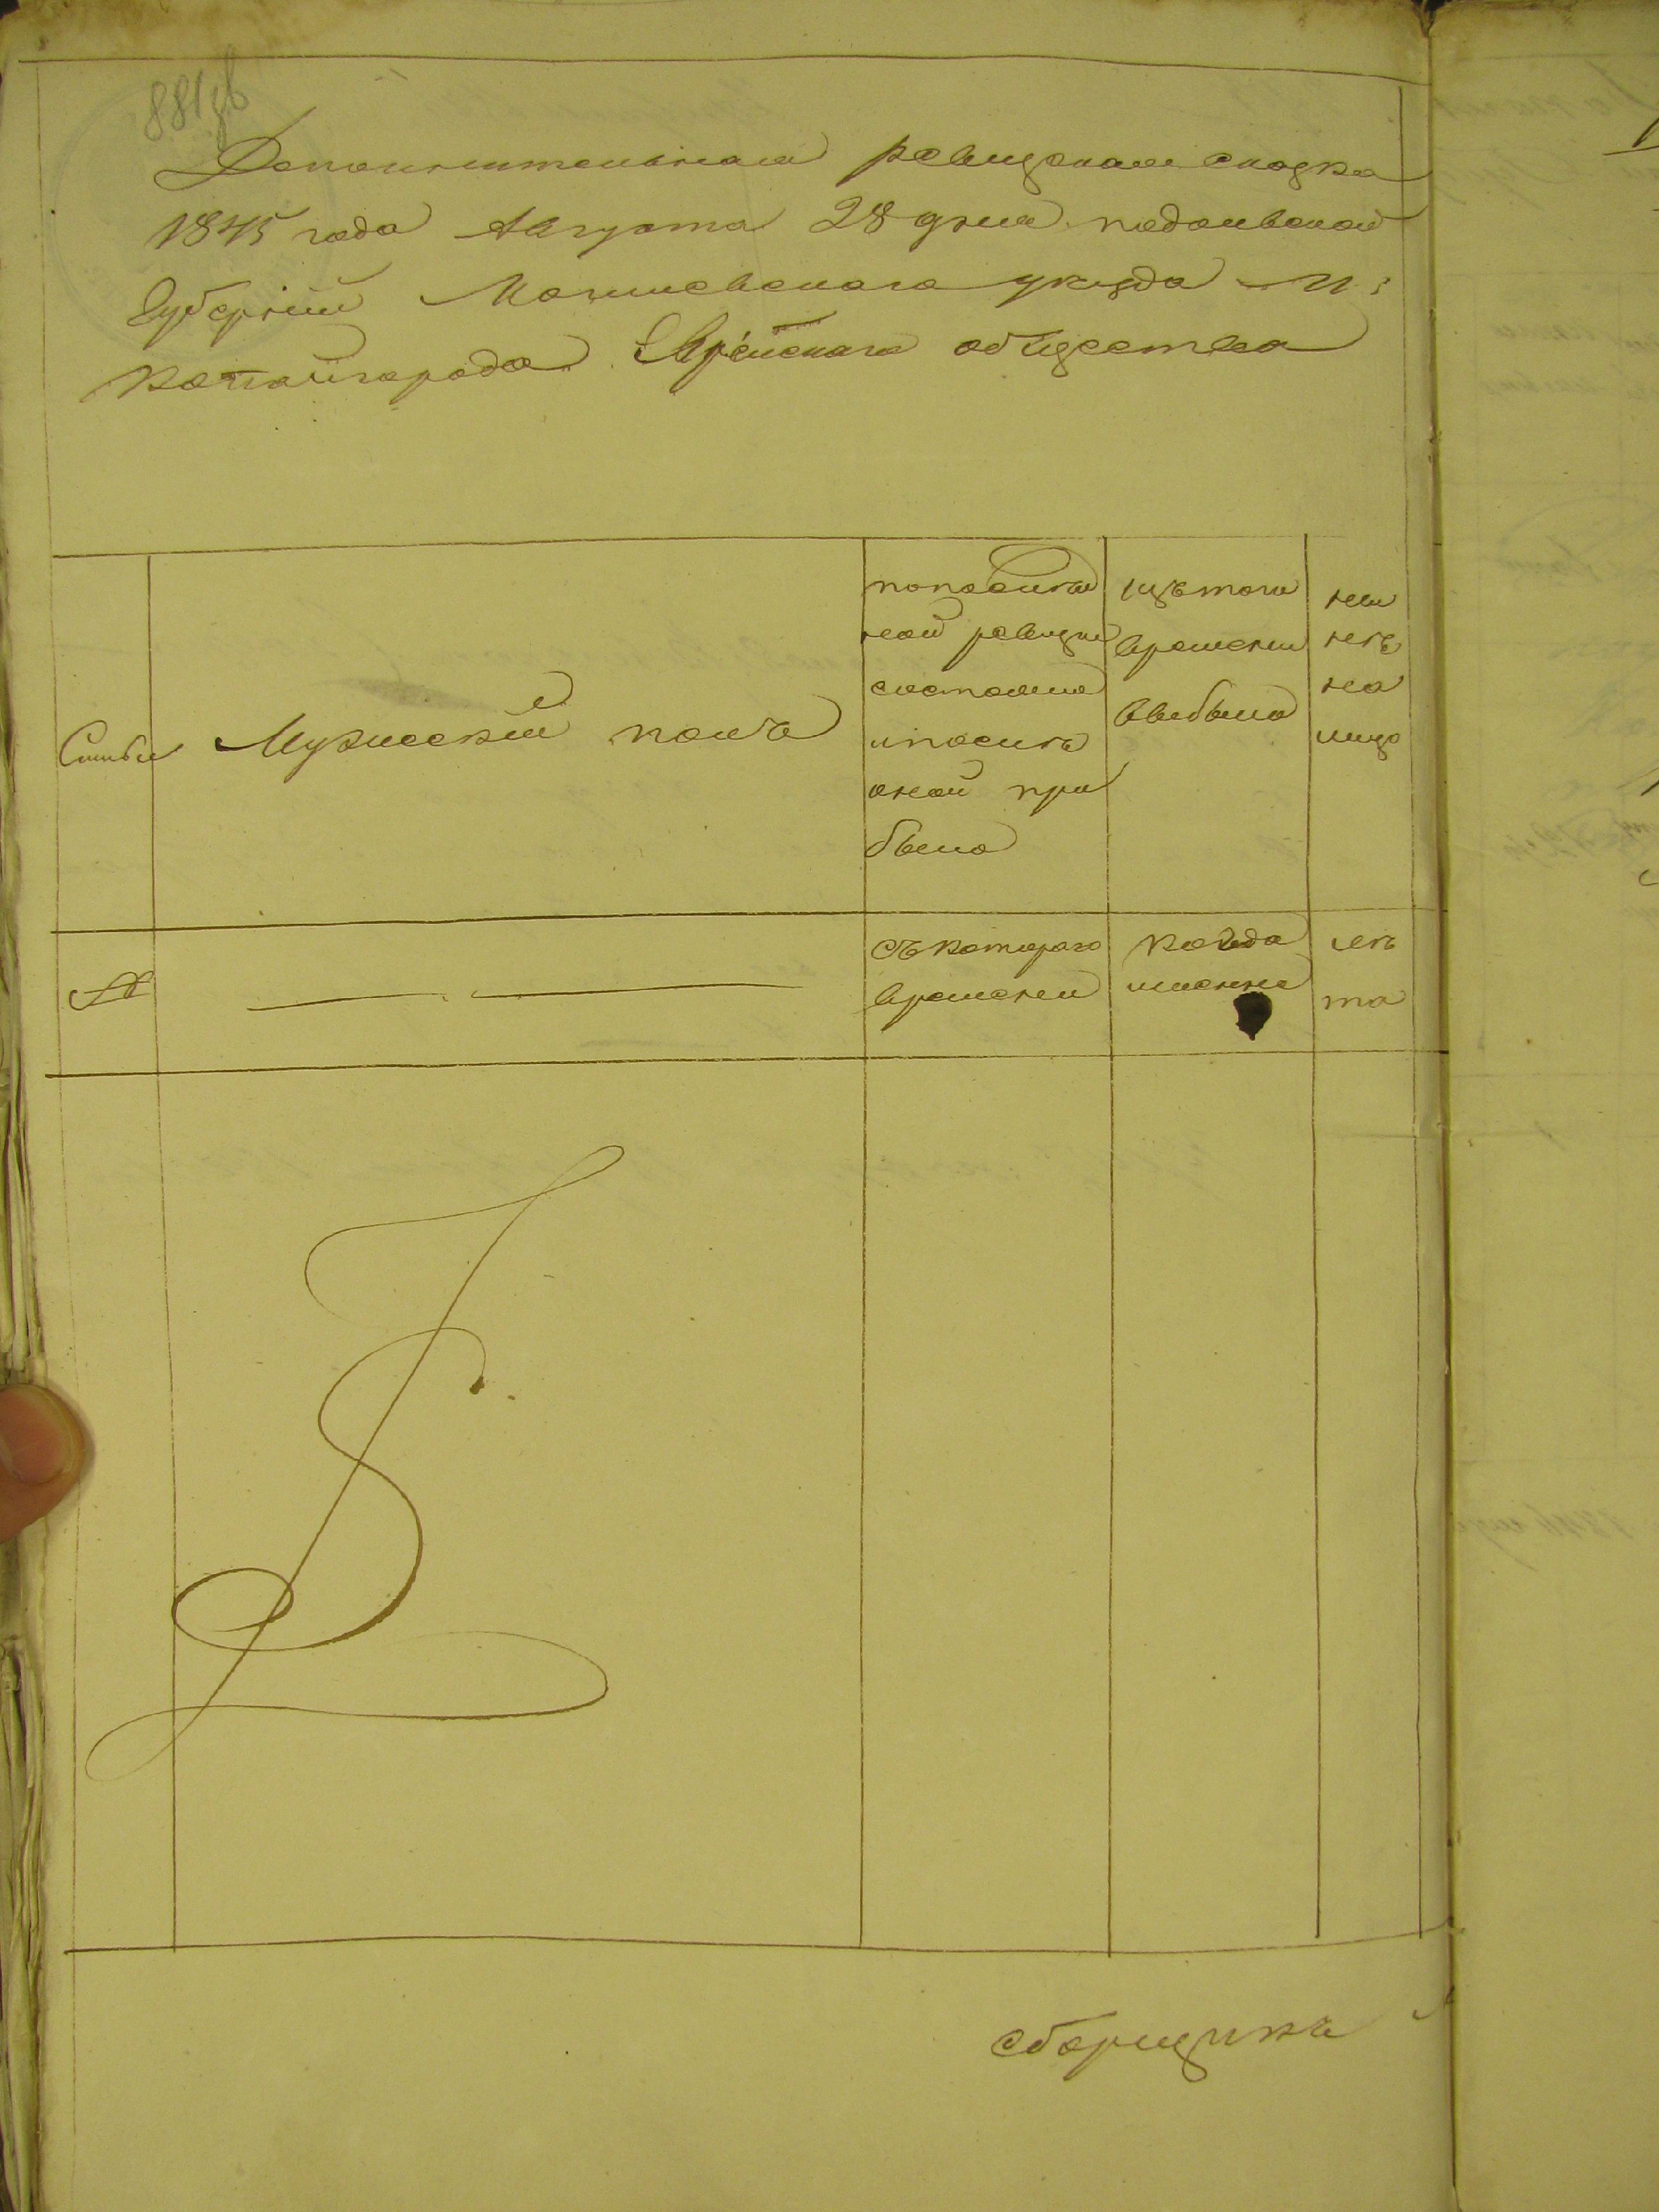 881 зв
Дополнительная ревизская сказка
1845 года Августа 28 дня подольской
Губернии Могилевскаго уезда М:
Копайгорода Еврейскаго общества
Мужеский полъ
по послед
ней ревизии
состояло
и после
оной при
было
изъ того
времени
выбыло
ны
не
на
лицо
№
съ котораго
времени
когда
именно
ле
та
сборщикъ